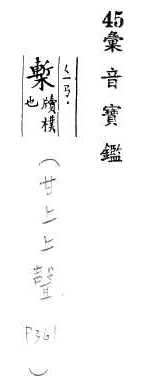 45彙音寶鑑
槧
牘樸
也
(甘上上聲 P361)